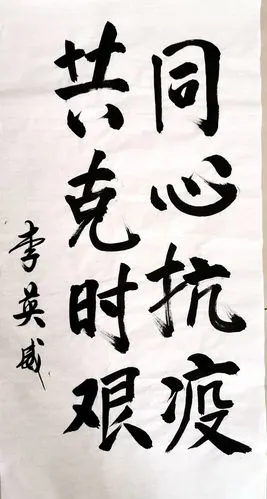 同心抗疫
共克时艰
李英威